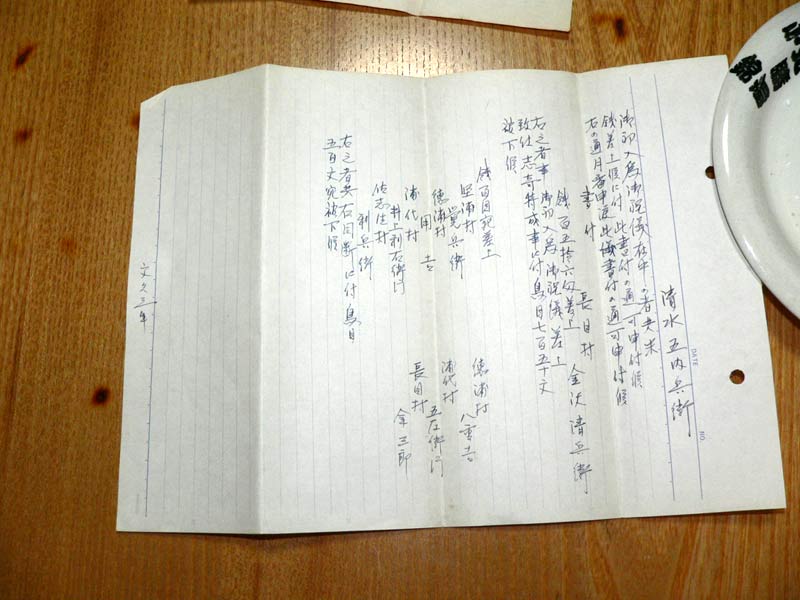 清水五内兵衛
御初入為御祝儀在中の者共米
銭差上候に付此書付の通可申付候
右の通月番申渡此儀書付の通可申付候
書付
長目村 金沢清兵衛
銭百五拾六匁差上
右之者事御初入為御祝儀差上
致仕志奇特成事に付鳥目七百五十文
被下候
銭百目宛差上
堅浦村
覚兵衛
徳浦村
八重吉
徳浦村
用吉
浦代村
五左衛門
浦代村
井上利右衛門
長目村
金三郎
佐志生村
利兵衛
右之者共右同断に付鳥目
五百文宛被下候
文久三年
DATE
NO.